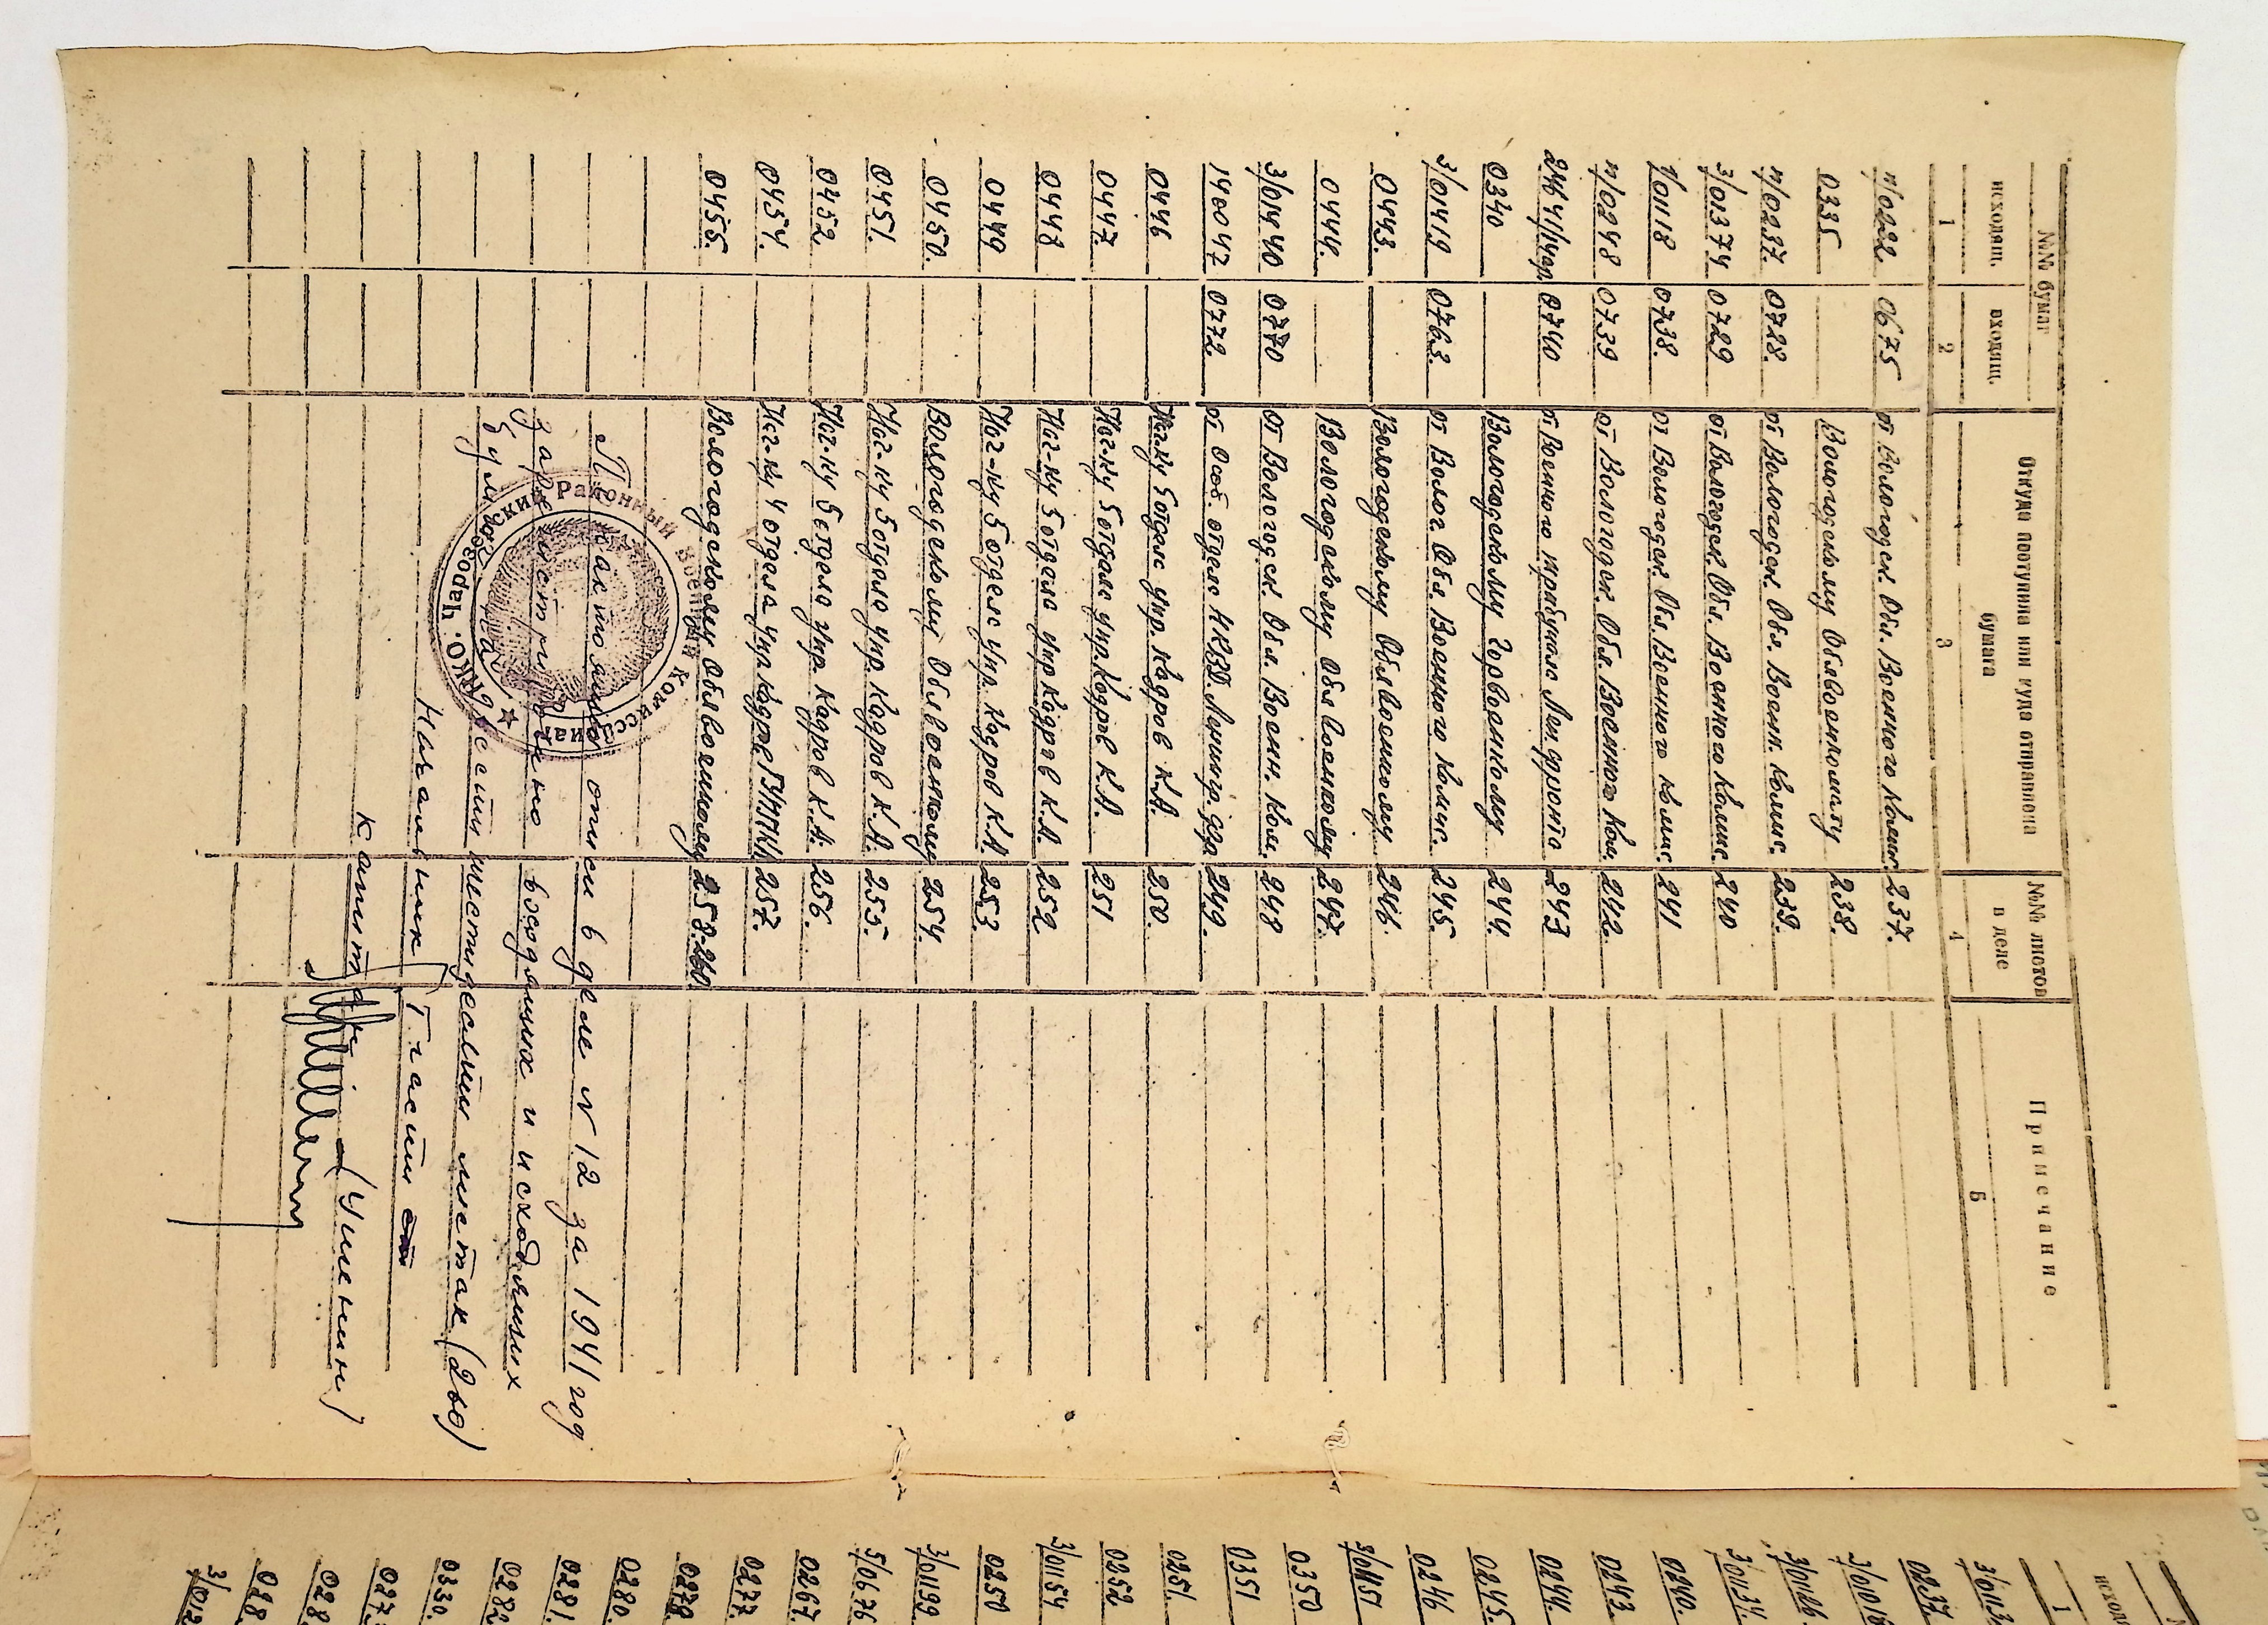 №№ бумаг
исходящ.
входящ.
Откуда поступила или куда отправлена
бумага
№№ листов
в деле
Примечание
1 2 3 4 5
4/0222 0675 от Вологодск. Обл. Военного Комис. 237.
0335 Вологодскому Облвоенкомату 238.
4/0237. 0728. от Вологодск. Обл. Военн. Комис. 239.
3/01374 0729 от Вологодск. Обл. Военного Комис. 240
1/01118 0738. от Вологодск. Обл. Военного Комис. 241
4/0248 0739 от Вологодск. Обл. Военного Ком. 242.
0740 от Военного трибунала Лен фронта 243
0340 Вологодскому Горвоенкому 244.
3/01419 0763. от Волог. Обл. Военного Комис. 245.
0443. Вологодскому Облвоенкому 246.
0444. Вологодскому Облвоенкому 247.
3/01440 0770 от Вологодск. Обл. Военн. Ком. 248
140047 0772. от Особ. отдела НКВД Ленингр. фра 249.
0446 Нач-ку 5 отдела упр. Кадров К.А. 250.
0447. Нач-ку 5 отдела упр. Кадров К.А. 251
0448 Нач-ку 5 отдела упр Кадров К.А. 252
0449 Нач-ку 5 отдела упр. Кадров К.А 253
0450. Вологодскому Облвоенкому 254.
0451. Нач-ку 5 отдела упр. Кадров К.А. 255.
0452. Нач-ку 5 отдела упр. Кадров К.А. 256.
0454. Нач-ку 4 отдела упр кадров 257.
0455. Вологодскому Облвоенкому 258-260
По настоящей описи в деле № 12 за 1941 год
зарегистрировано входящих и исходящих
бумаг на двести шестидесяти листах (260)
Начальник I части
капитан (Ушенин)
НКО. Чарозерский Районный Военный Комиссариат
исходящ.
1
0237.
0240.
0243.
0244.
0245.
0246
3/01151
0350
0351
0251.
0252
3/01154
0250
3/01199
5/0676
0267.
0277
0278.
0280.
0281.
0282
0330.